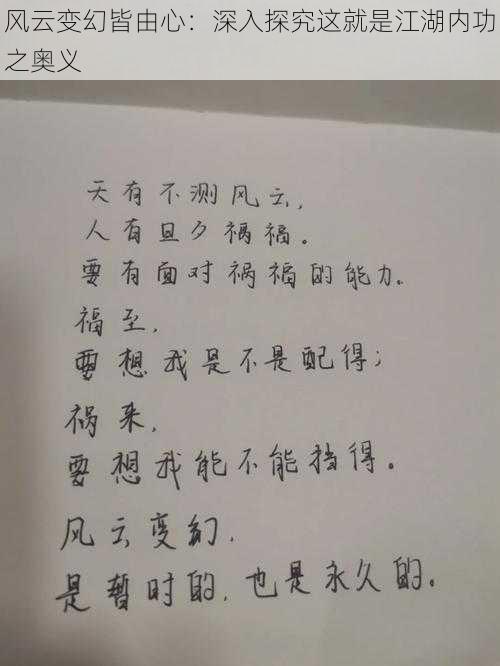 风云变幻皆由心：深入探究这就是江湖内功
之奥义
天有不测风云，
人有旦夕祸福。
要有面对祸福的能力。
福至，
要想我是不是配得；
祸来，
要想我能不能挡得。
风云变幻，
是暂时的，也是永久的。